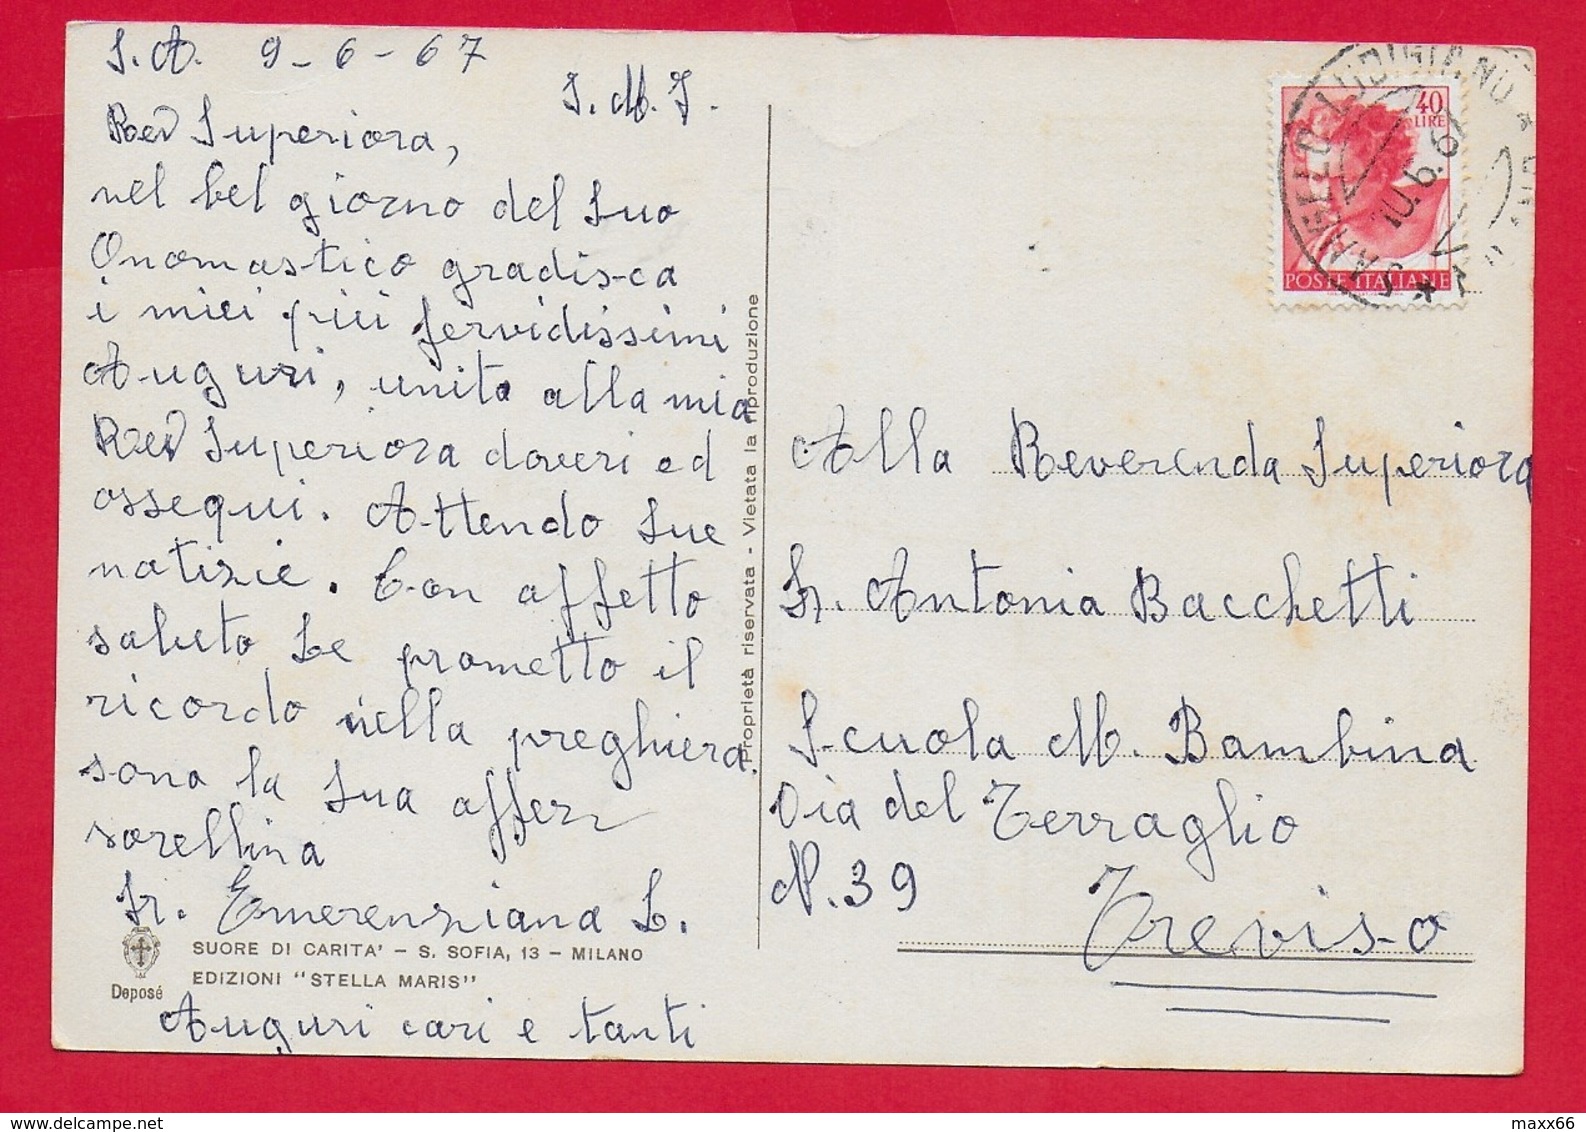 S.A. 9-6-67
J.M.J.
Rev Superiora,
nel bel giorno del Suo
Onomastico gradisca
i miei più fervidissimi
Auguri, unito alla mia
Rev Superiora doveri ed
ossequi. Attendo Sue
notizie. Con affetto
saluto Le prometto il
ricordo nella preghiera.
sono la Sua affez
sorellina
Sr. Emerenziana L.
SUORE DI CARITA' – S. SOFIA, 13 – MILANO
EDIZIONI "STELLA MARIS"
Deposé
Auguri cari e tanti
Proprietà riservata - Vietata la riproduzione
40
LIRE
POSTE ITALIANE
LODIGIANO
10.6.6
Alla Reverenda Superiora
Sr. Antonia Bacchetti
Scuola M. Bambina
Via del Terraglio
N. 39
Treviso
maxx66